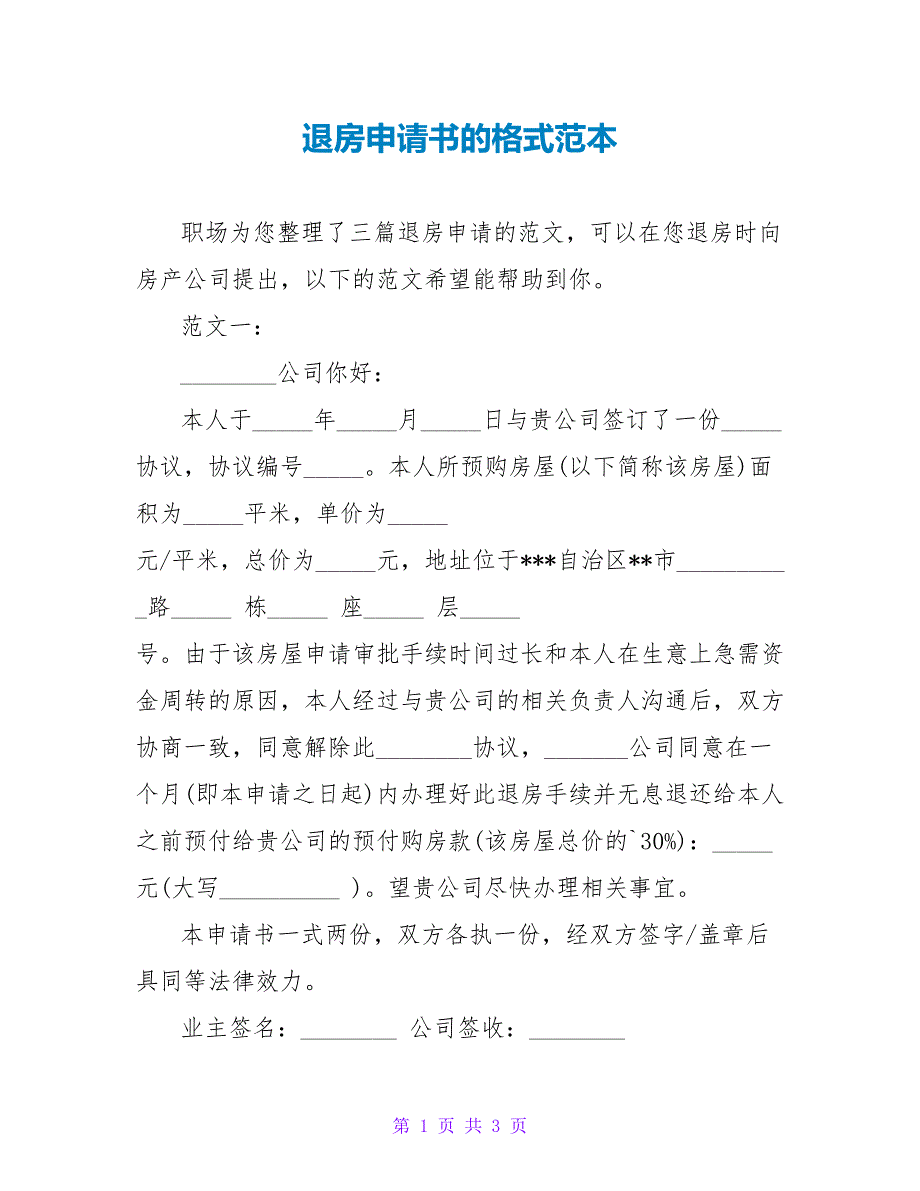 退房申请书的格式范本
职场为您整理了三篇退房申请的范文，可以在您退房时向
房产公司提出，以下的范文希望能帮助到你。
范文一：
________公司你好：
本人于_____年_____月_____日与贵公司签订了一份_____
协议，协议编号_____。本人所预购房屋(以下简称该房屋)面
积为_____平米，单价为_____
元/平米，总价为_____元，地址位于***自治区**市_________
_路_____ 栋_____ 座_____ 层_____
号。由于该房屋申请审批手续时间过长和本人在生意上急需资
金周转的原因，本人经过与贵公司的相关负责人沟通后，双方
协商一致，同意解除此________协议，_______公司同意在一
个月(即本申请之日起)内办理好此退房手续并无息退还给本人
之前预付给贵公司的预付购房款(该房屋总价的`30%)：_____
元(大写__________ )。望贵公司尽快办理相关事宜。
本申请书一式两份，双方各执一份，经双方签字/盖章后
具同等法律效力。
业主签名：________ 公司签收：________
第 1 页 共 3 页